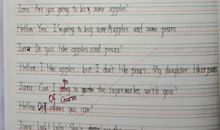 Are you going to buy some apples?
Hellen: Yes, I'm going to buy some apples and some pears
Do you like apples and pears?
Hellen: I like apples, but I don't like pears. My daughter likes pears
Can I going to the supermarket with you?
Of Course
Hellen: you can!